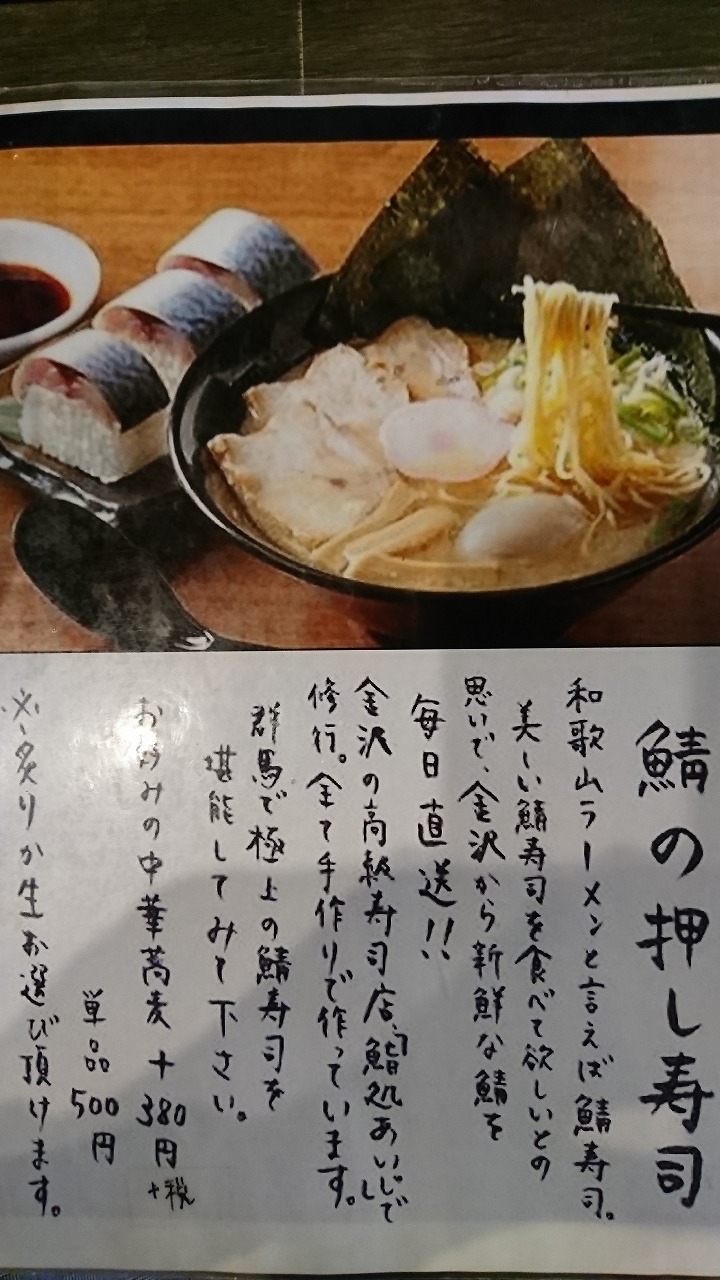 鯖の押し寿司
和歌山ラーメンと言えば鯖寿司。
美しい鯖寿司を食べて欲しいとの
思いで、金沢から新鮮な鯖を
毎日直送!!
金沢の高級寿司店、「鮨処あいじ」で
修行。全て手作りで作っています。
群馬で極上の鯖寿司を
堪能してみて下さい。
お好みの中華蕎麦+380円+税
単品500円
※炙りか生お選び頂けます。